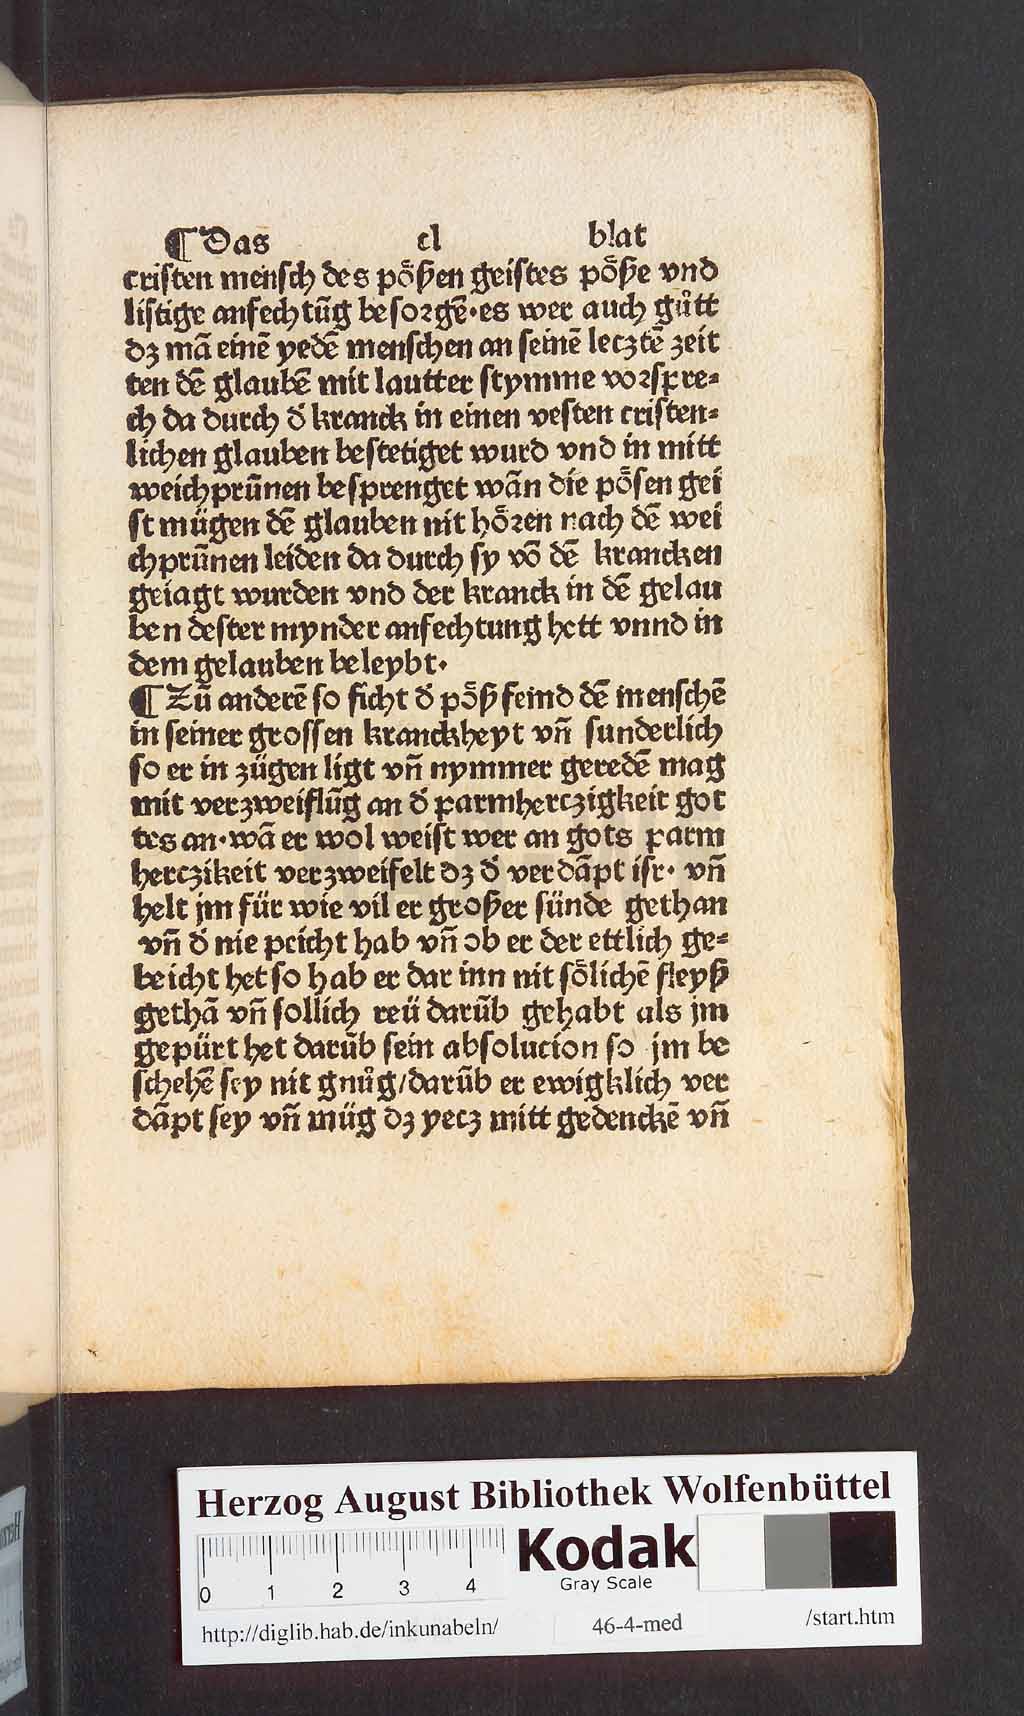 ¶ Das cl blat
cristen mensch des pößen geistes pöße vnd
listige anfechtūg besorgē·es wer auch gůtt
dz mā einē yedē menschen an seinē lecztē zeit
ten dē glaubē mit lautter stymme vorspre⸗
ch da durch d̛ kranck in einen vesten cristen⸗
lichen glauben bestetiget wurd vnd in mitt
weichprūnen besprenget wān die pösen gei
st mügen dē glauben nit hören nach dē wei
chprūnen leiden da durch sy vō dē krancken
geiagt wurden vnd der kranck in dē gelau
ben dester mynder anfechtung hett vnnd in
dem gelauben beleybt·
¶ Zū anderē so ficht d̛ pöß feind dē menschē
in seiner grossen kranckheyt vn̄ sunderlich
so er in zügen ligt vn̄ nymmer geredē mag
mit verzweiflūg an d̛ parmherczigkeit got
tes an·wā er wol weist wer an gots parm
herczikeit verzweifelt dz d̛ verdāpt ist· vn̄
helt jm für wie vil er großer sünde gethan
vn̄ d̛ nie peicht hab vn̄ ob er der ettlich ge⸗
beicht het so hab er dar inn nit sölichē fleyß
gethā vn̄ sollich reü darūb gehabt als jm
gepürt het darūb sein absolucion so jm be
schehē sey nit gnůg/darūb er ewigklich ver
dāpt sey vn̄ müg dz yecz mitt gedenckē vn̄
Herzog August Bibliothek Wolfenbüttel
0 1 2 3 4
Kodak
Gray Scale
http://diglib.hab.de/inkunabeln/ 46-4-med /start.htm